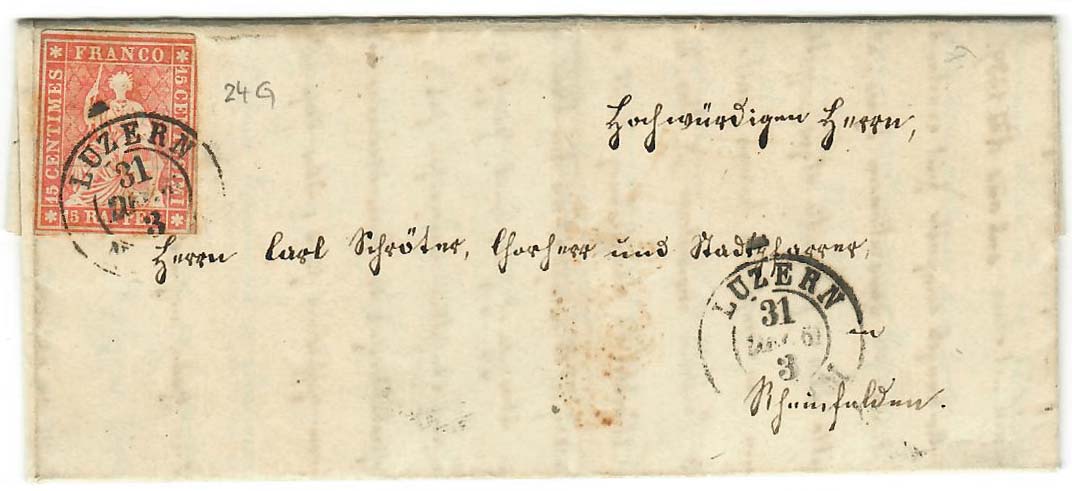 FRANCO
15 CENTIMES
15 CENTESIMI
15 RAPPEN
24G
LUZERN
31
3
Hochwürdigen Herrn,
Herrn Carl Schröter, Chorherr und Stadtpfarrer,
LUZERN
31
3
in
Rheinfelden.